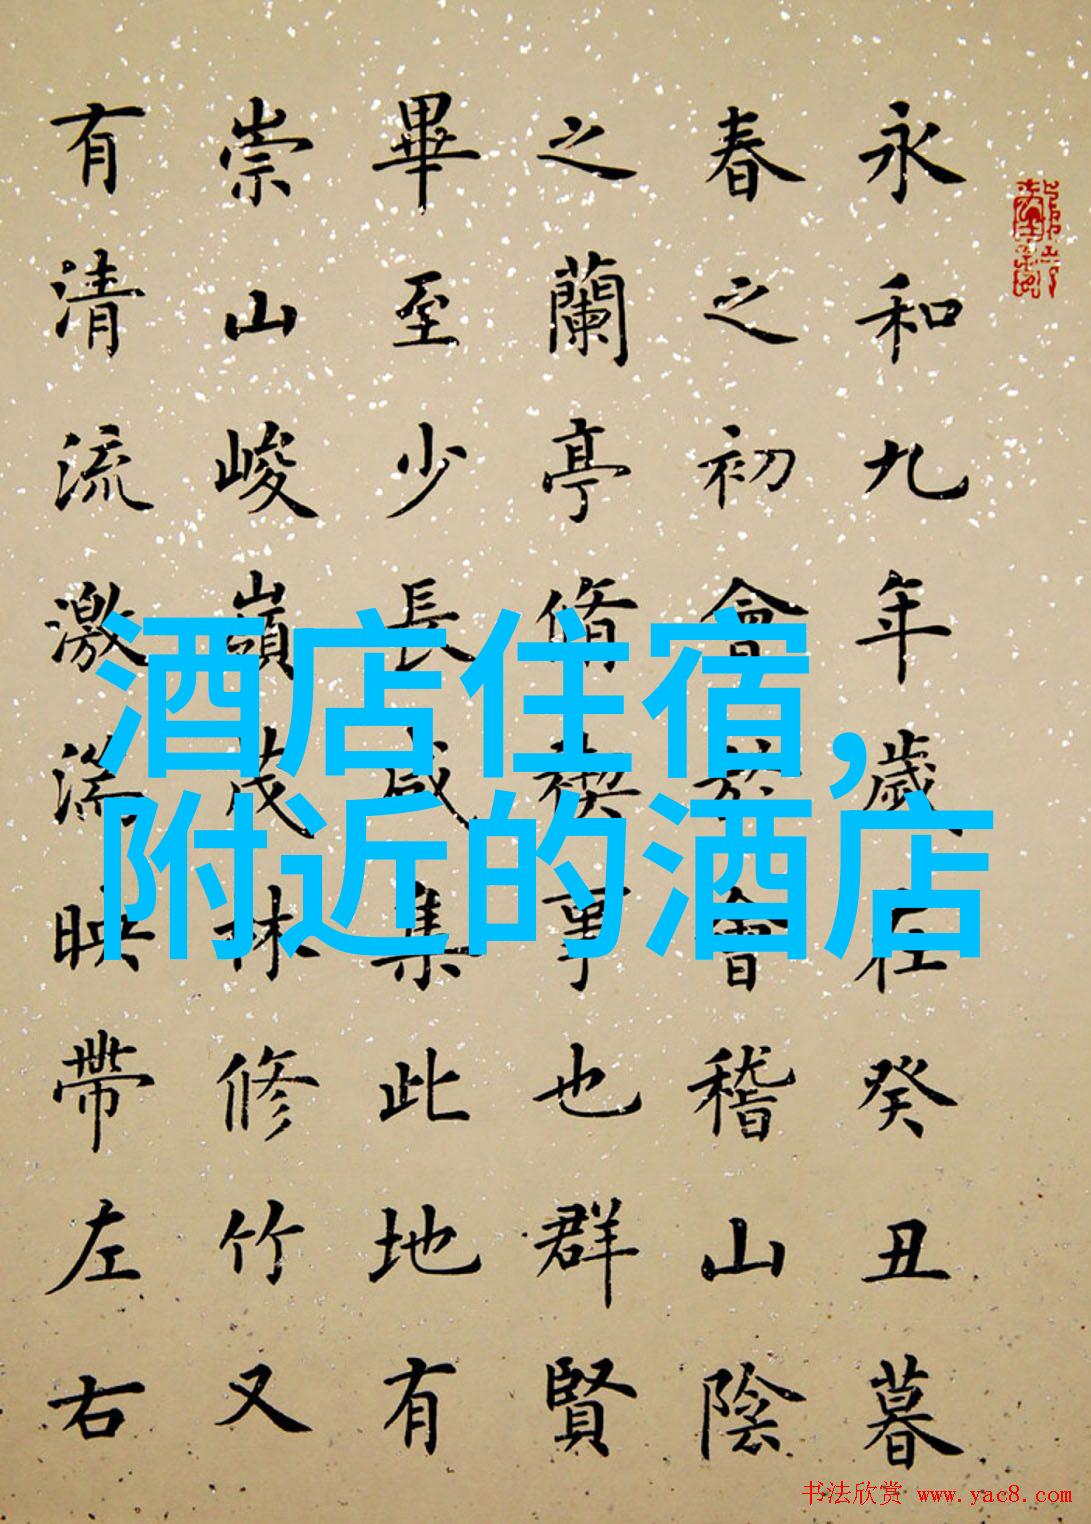 永和九年歲在癸丑暮
春之初會於會稽山陰
之蘭亭脩禊事也群賢
畢至少長咸集此地有
崇山峻嶺茂林修竹又
有清流激湍映帶左右
酒店住宿,
附近的酒店
书法欣赏 www.yac8.com